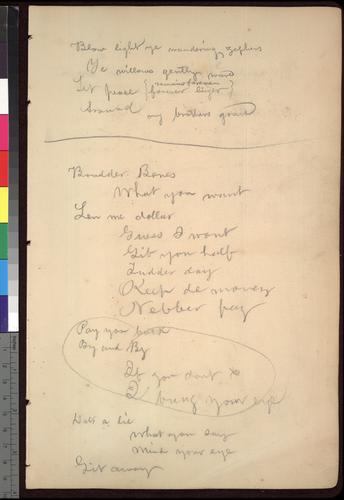 Blow light ye wandering zephers
Ye willows gently wave
remain forever
Let peace { forever linger }
Around my brothers grave
Brudder Bones
What you want
Len me dollar
Guess I wont
Gib you half
Tudder day
Keep de money
Nebber pay
Pay you back
By and By
If you dont x
I bung your eye
Dats a lie
What you say
Mind your eye
Git away